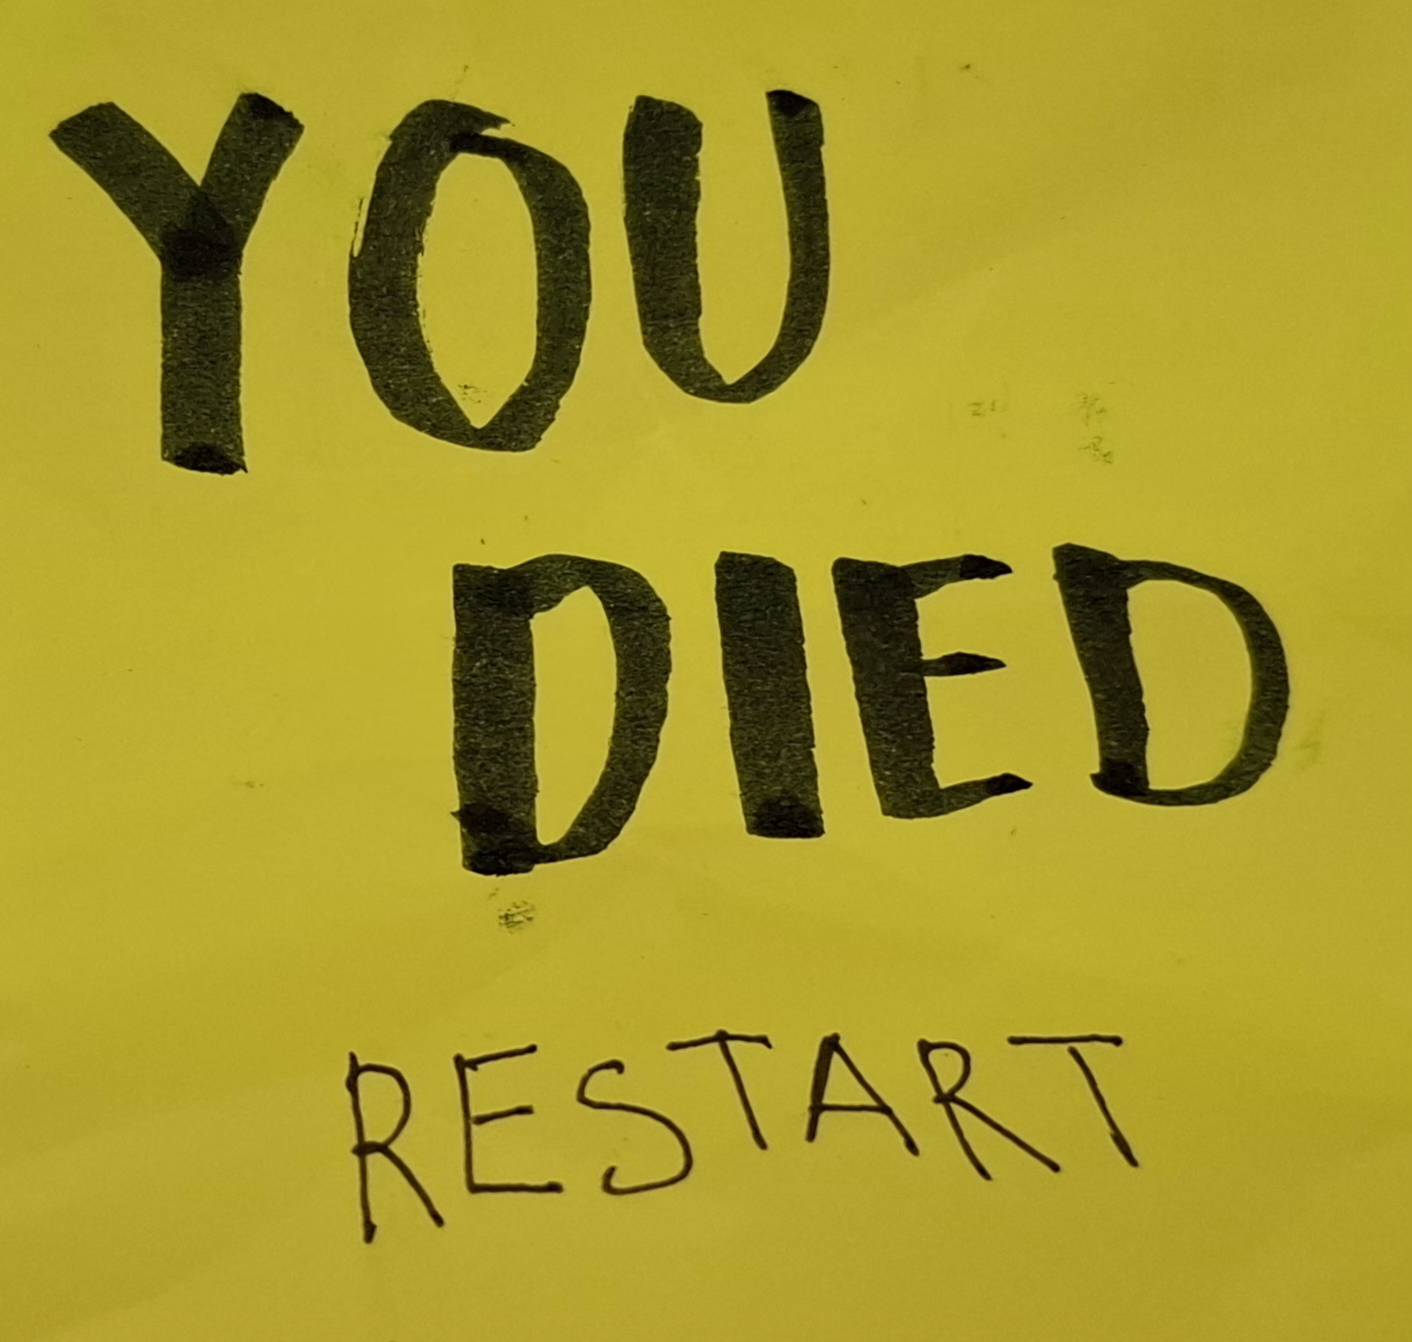 YOU
DIED
RESTART